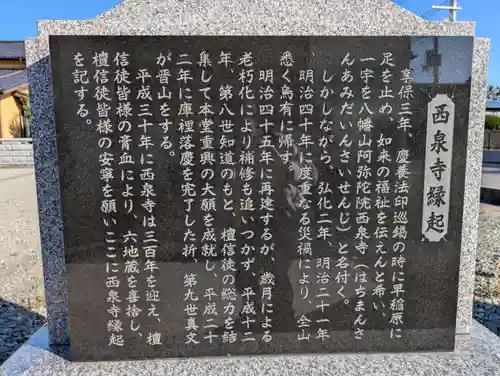 西泉寺縁起
享保三年、慶養法印巡錫の時に早稲原に
足を止め、如来の福祉を伝えんと希い、
一宇を八幡山阿弥陀院西泉寺（はちまんさ
んあみだいんさいせんじ）と名付く。
しかしながら、弘化二年、明治二十一年
、明治四十年に度重なる災禍により、全山
悉く烏有に帰す。
明治四十五年に再建するが、歳月による
老朽化により補修も追いつかず、平成十二
年、第八世知道のもと、檀信徒の総力を結
集して本堂重興の大願を成就し、平成二十
二年に庫裡落慶を完了した折、第九世真文
が晋山をする。
平成三十年に西泉寺は三百年を迎え、檀
信徒皆様の貴血により、六地蔵を喜捨し、
檀信徒皆様の安寧を願いここに西泉寺縁起
を記する。